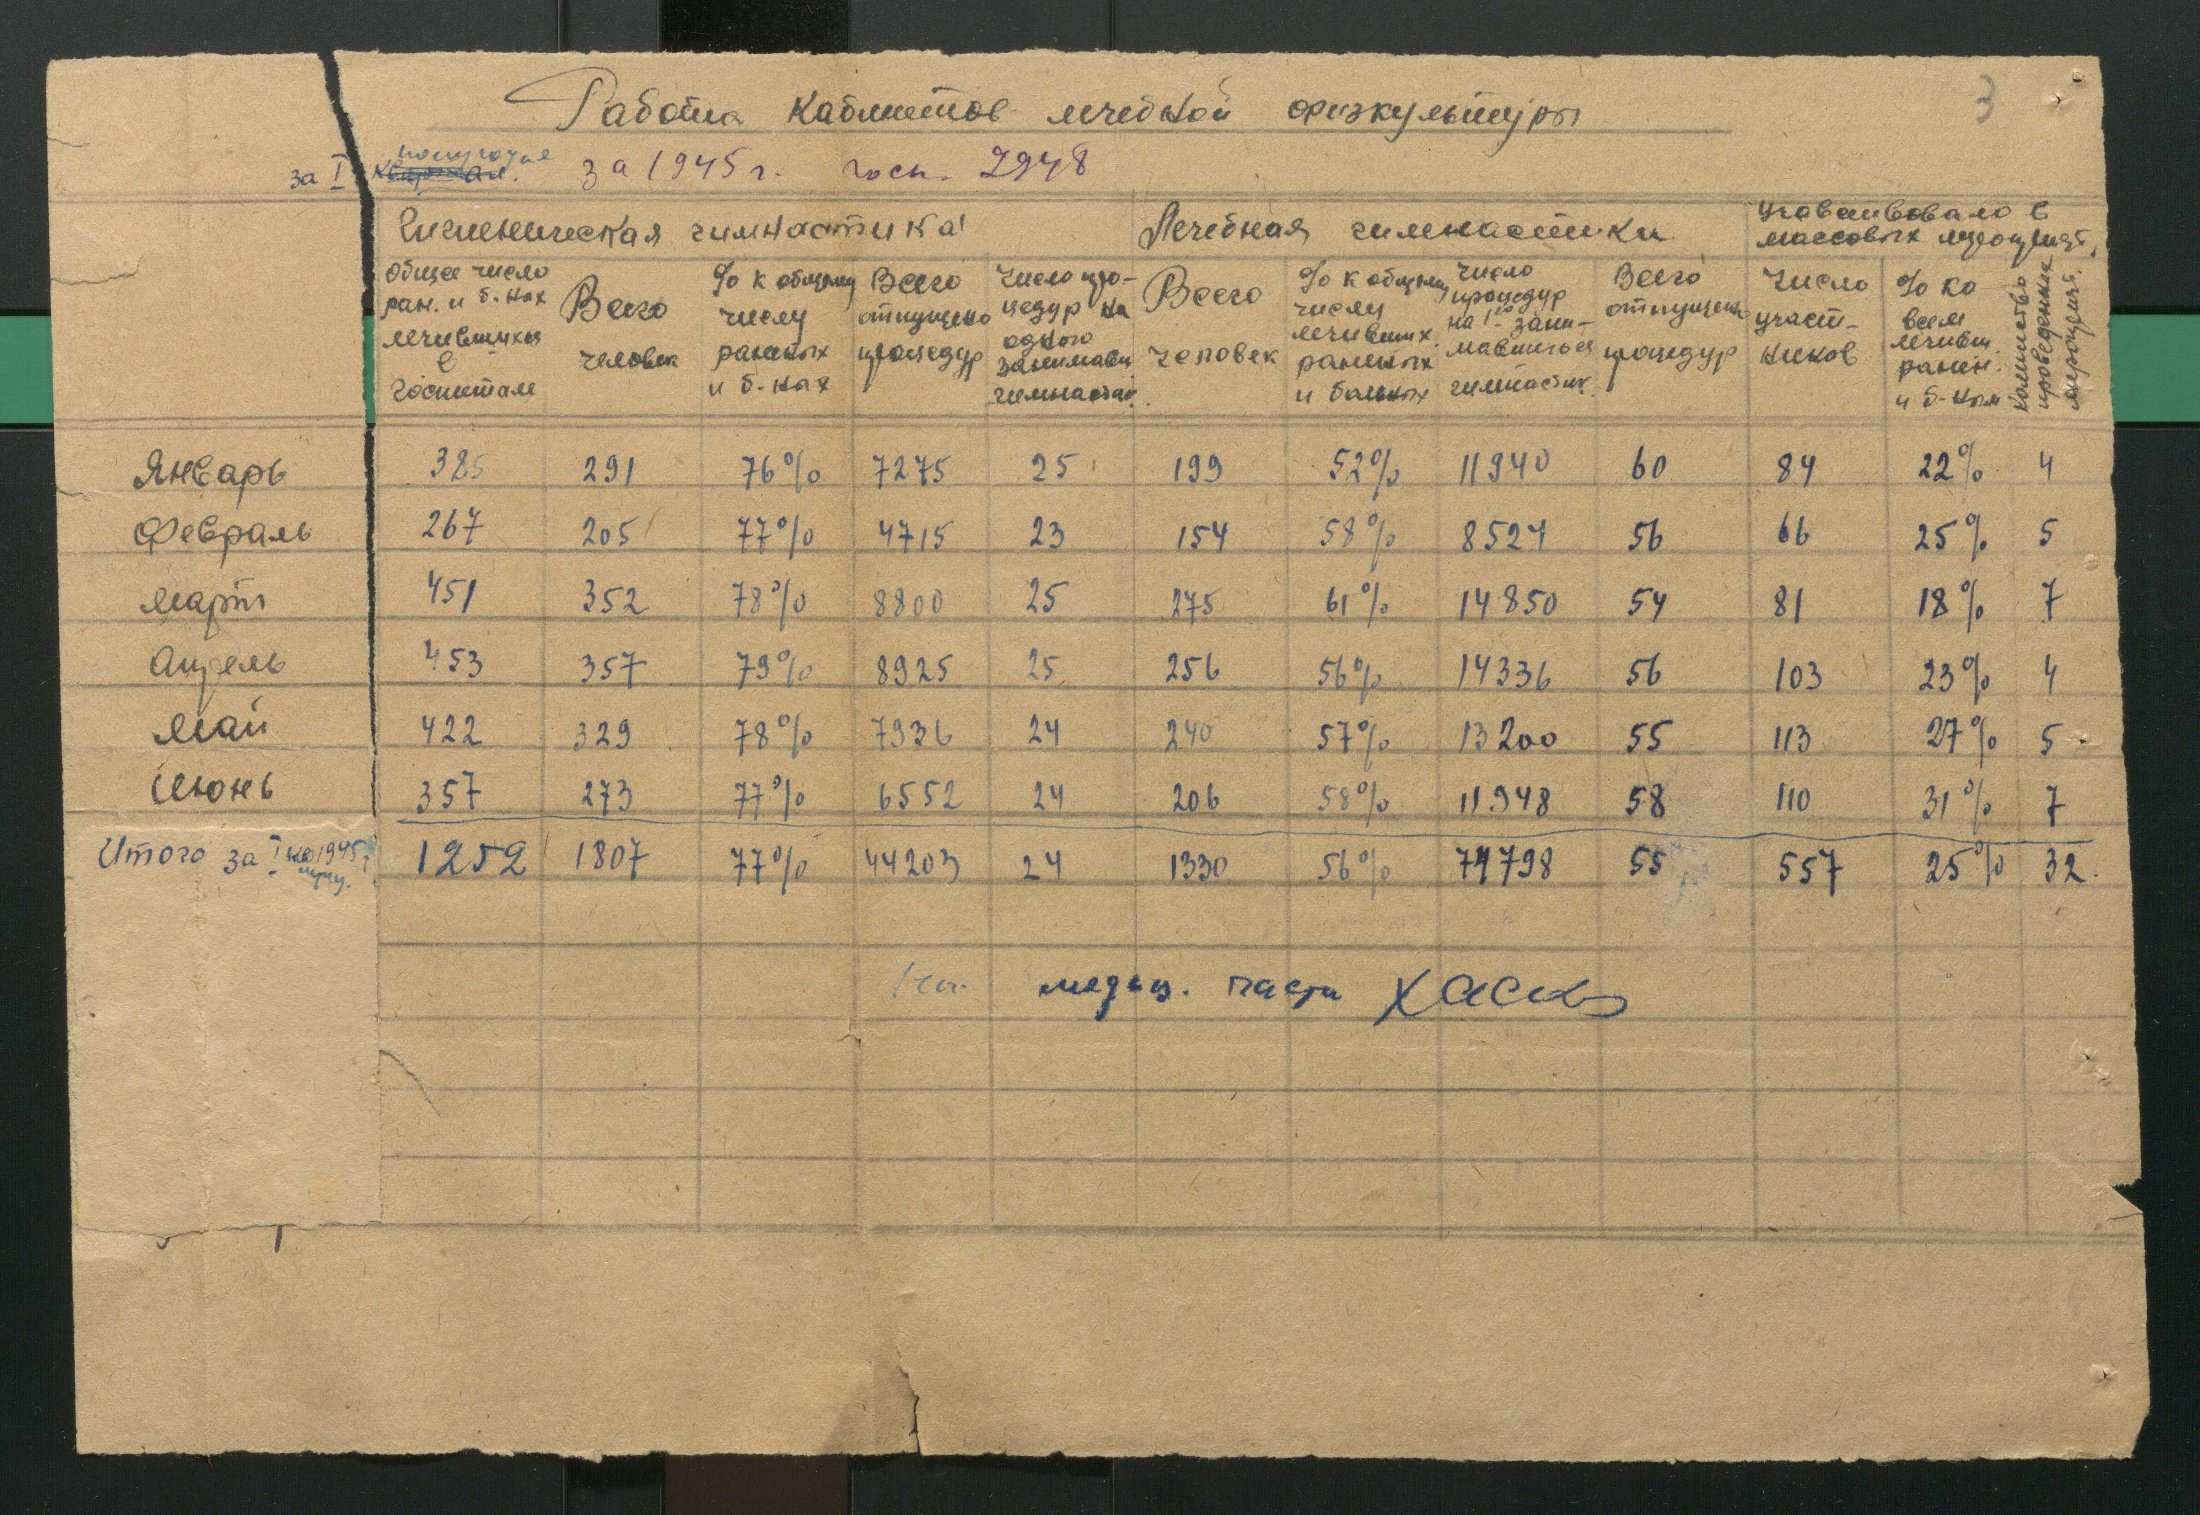 3
Работа кабинетов лечебной физкультуры
за I полугодие за 1945 г. госп. 2948
Гигиеническая гимнастика Лечебная гимнастики Учавствовало в массовых мероприят.
Общее число ран. и б-ных лечившихся в госпитале
Всего человек
% к общему числу раненых и б-ных
Всего отпущено процедур
Число про-цедур на одного занимавш гимнастик.
Всего человек
% к общему числу лечивших. раненых и больных
Число процедур на 1го зани-мавшигося гимнастик.
Всего отпущено процедур
Число участ-ников
% ко всем лечивш. ранен. и б-ным
Количество проведенных мероприят.
Январь 385 291 76% 7275 25 199 52% 11940 60 84 22% 4
Февраль 267 205 77% 4715 23 154 58% 8524 56 66 25% 5
Март 451 352 78% 8800 25 275 61% 14850 54 81 18% 7
Апрель 453 357 79% 8925 25 256 56% 14336 56 103 23% 4
Май 422 329 78% 7936 24 240 57% 13200 55 113 27% 5
Июнь 357 273 77% 6552 24 206 58% 11948 58 110 31% 7
Итого за I 1945 г 1252 1807 77% 44203 24 1330 56% 74798 55 557 25% 32.
Нач. медиц. части